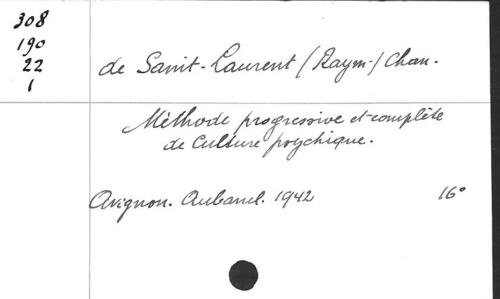 308
190
22
1
de Saint-Laurent (Raym.) Chan.
Méthode progressive et complète
de Culture psychique.
Avignon. Aubanel. 1942 16°